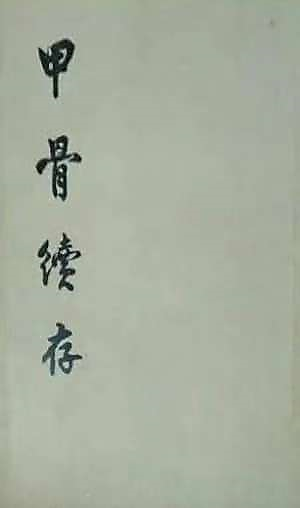 甲骨續存